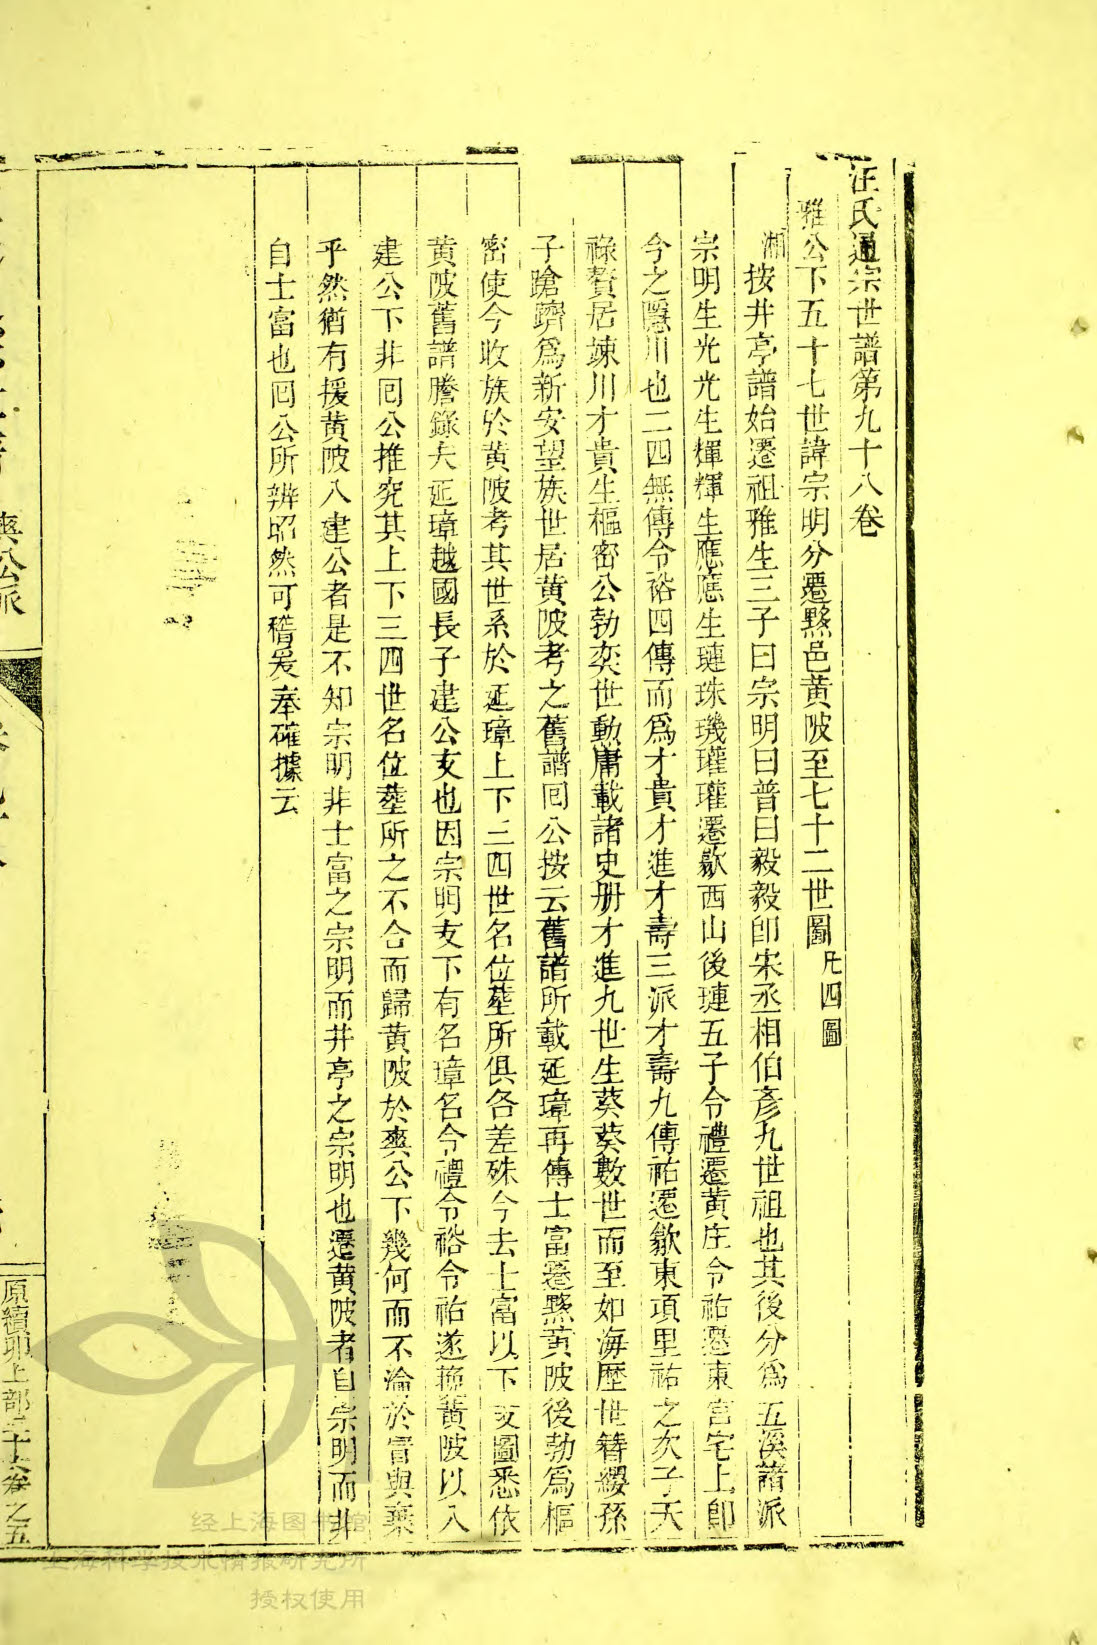 汪氏通宗世譜第九十八卷
雅公下五十七世諱宗明分遷黟邑黄陂至七十二世圖凡四圖
湘按井亭譜始遷祖雅生三子曰宗明曰普曰毅毅卽宋丞相伯彥九世祖也其後分爲五溪諸派
宗明生光光生輝輝生應應生璉珠璣瓘瓘遷歙西山後璉五子令禮遷黄庄令祐遷東宫宅上卽
今之隱川也二四無傳令裕四傳而爲才貴才進才壽三派才壽九傳祐遷歙東項里祐之次子天
祿贅居竦川才貴生樞密公勃奕世勳庸載諸史册才進九世生葵葵數世而至如海歷世簪纓孫
子蹌躋爲新安望族世居黄陂考之舊譜囘公按云舊譜所載延璋再傳士富遷黟黄陂後勃爲樞
密使今收族於黄陂考其世系於延璋上下三四世名位塟所俱各差殊今去士富以下攴圖悉依
黄陂舊譜謄錄夫延璋越國長子建公攴也因宗明攴下有名璋名令禮令裕令祐遂拖黄陂以入
建公下非囘公推究其上下三四世名位塟所之不合而歸黄陂於爽公下幾何而不淪於冒與棄
乎然猶有援黄陂入建公者是不知宗明非士富之宗明而井亭之宗明也遷黄陂者自宗明而非
自士富也囘公所辨昭然可稽爰奉確據云
爽公派
原續卯上部三十六卷之五
经上海图书馆
上海科学技术情报研究所
授权使用